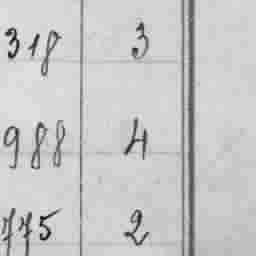 318 3
988 4
775 2